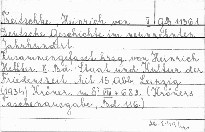 Treitschke, Heinrich von I, QB 11361
Deutsche Geschichte im neunzehnten
Jahrhundert
Zusammengefasst hrsg. von Heinrich
Heffter. 2. Bd. Staat und Kultur der
Friedenszeit. Mit 15 Abb. Leipzig
(1934) Kröner. 8° + 682. (Kröners
Taschenausgabe, Bd. 116.)